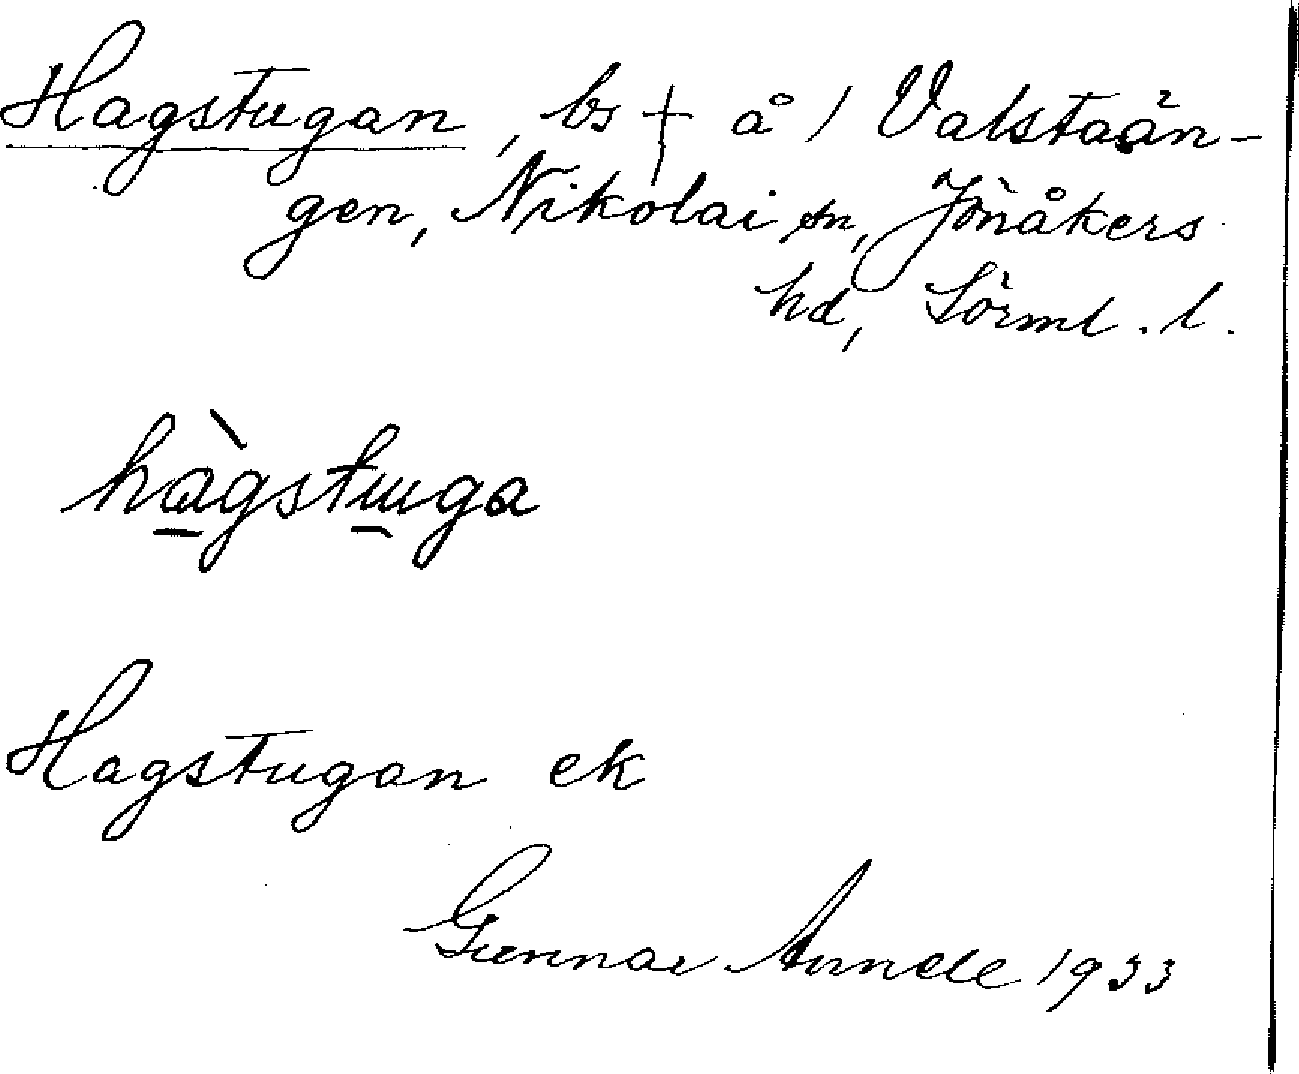 Hagstugan, bs † å 1 Valstaän-
gen, Nikolai sn, Jönåkers
hd, Sörml. l.
hàgstuga
Hagstugan ek
Gunnar Annell 1933